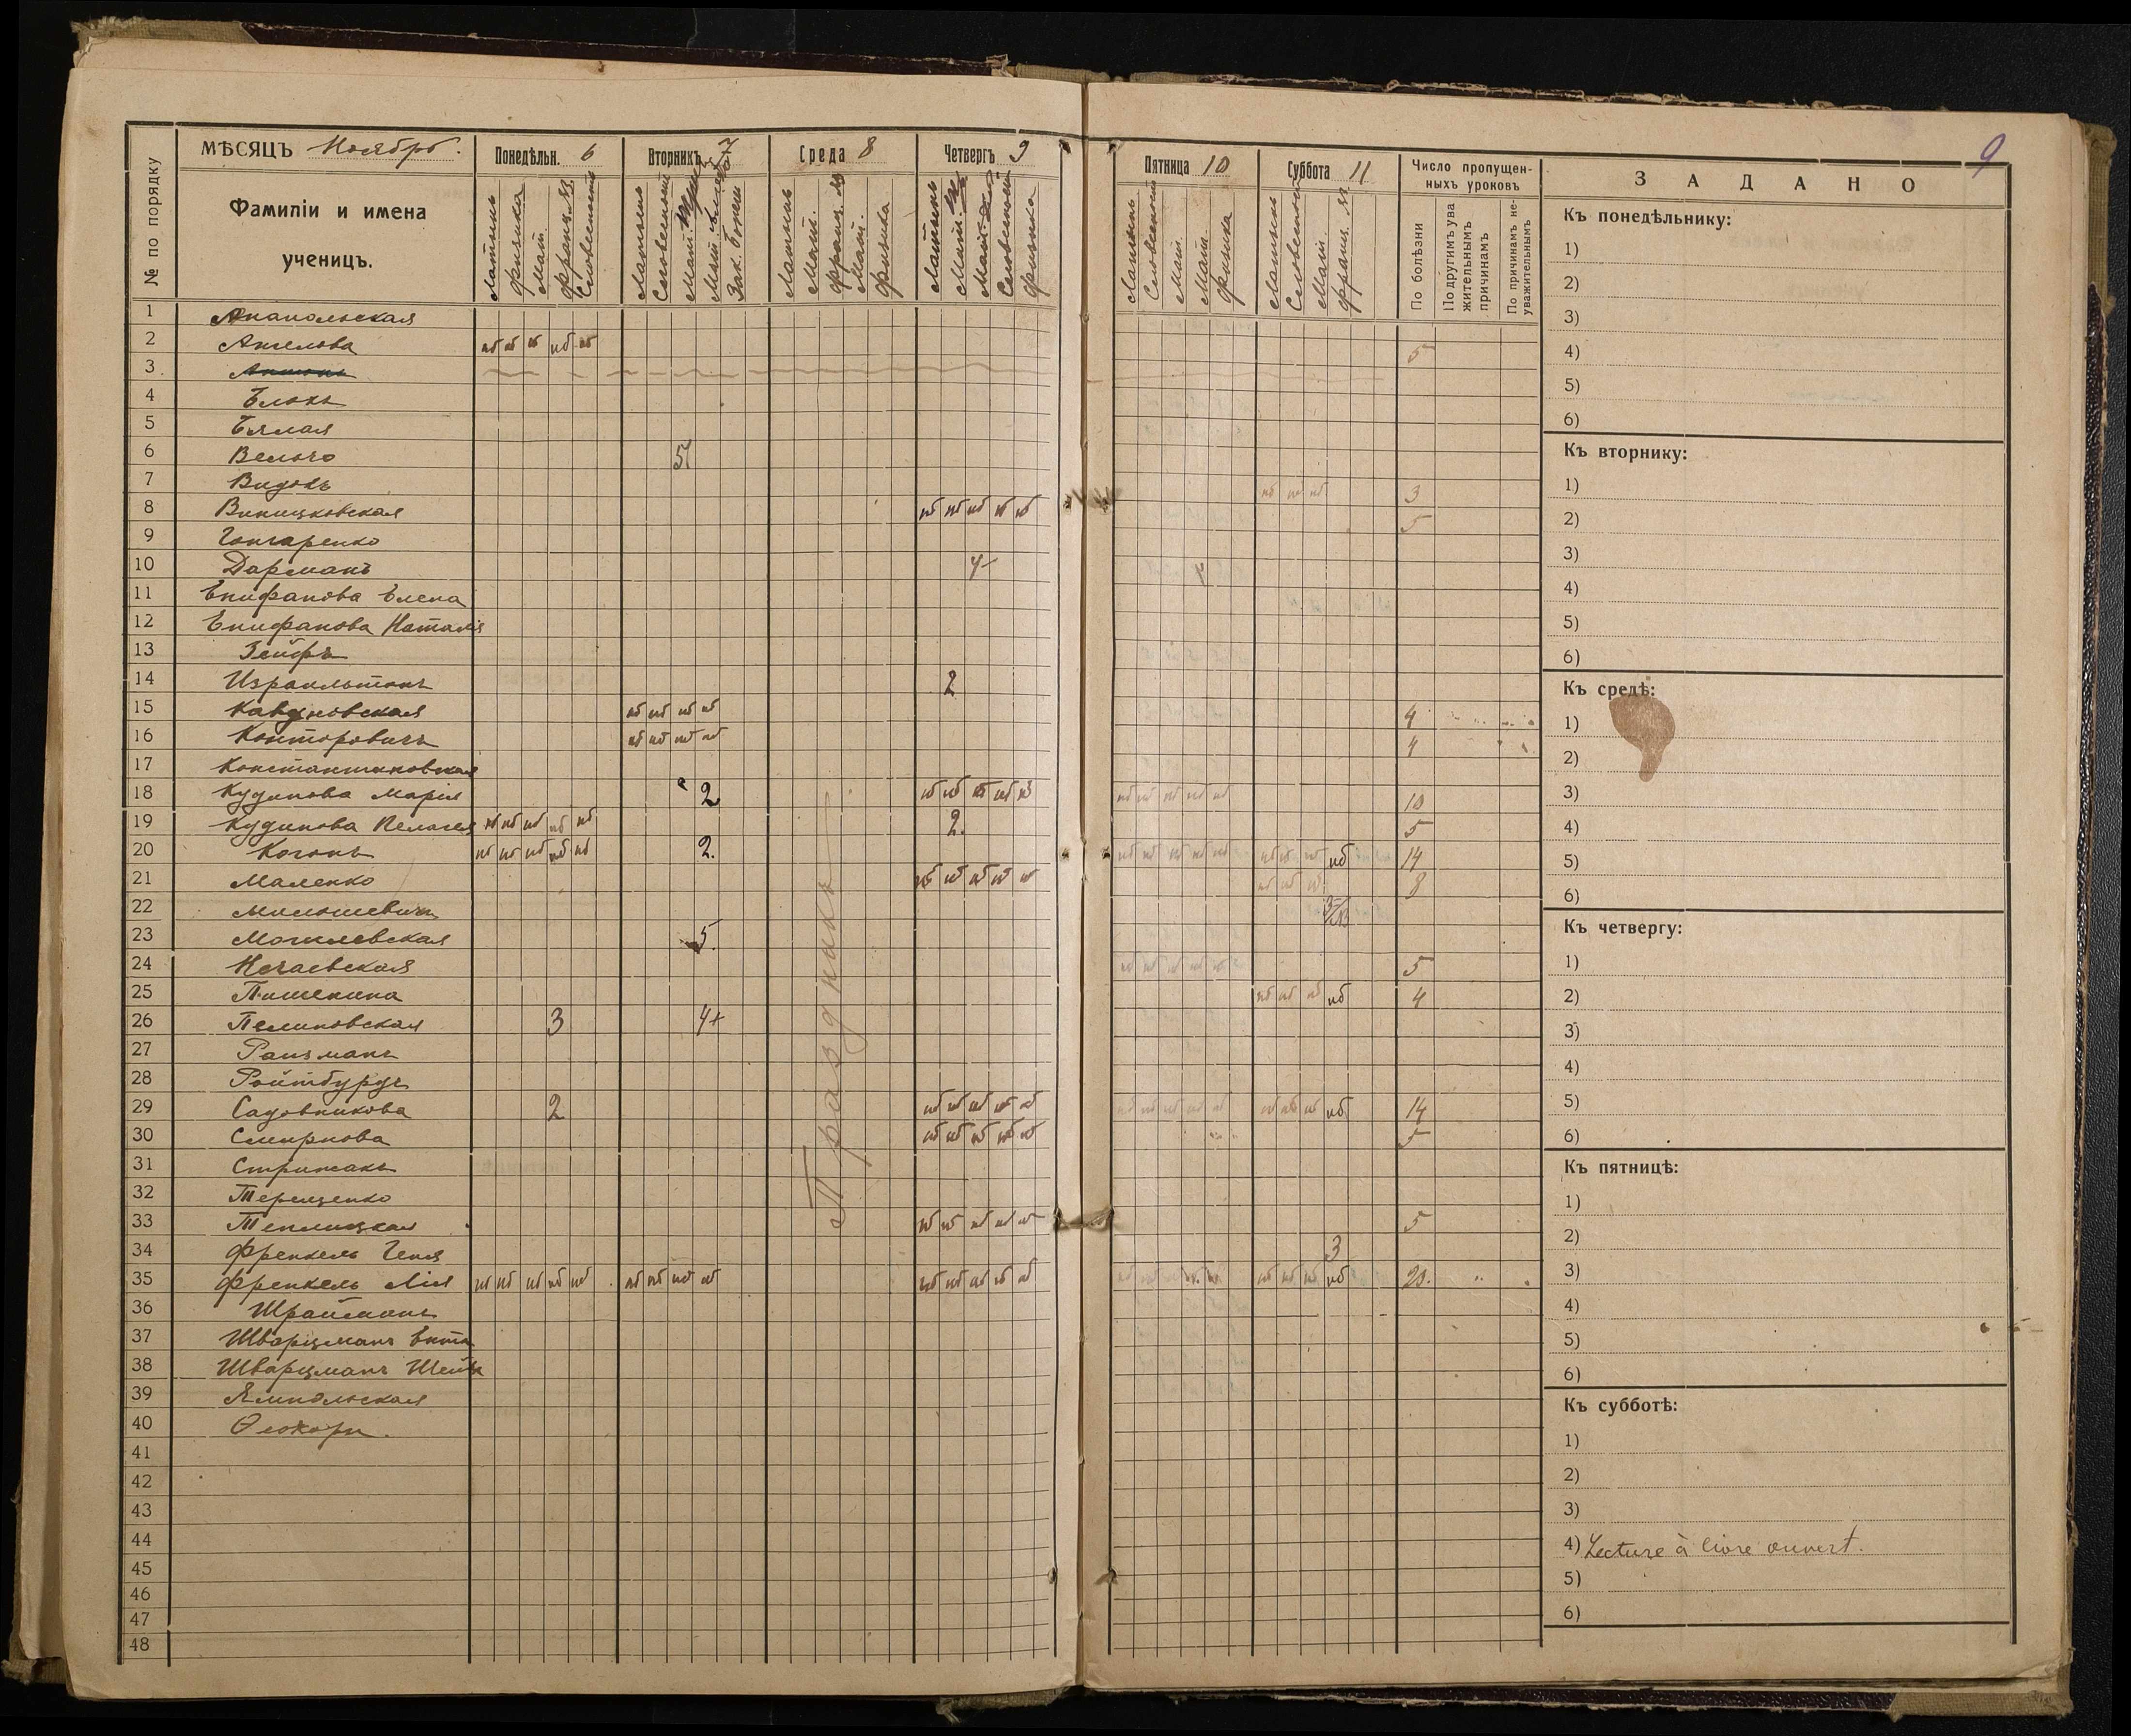 9
МѢСЯЦЪ Ноябрь.
№ по порядку
Фамиліи и имена
ученицъ.
Понедѣльн. 6
Латынь
Физика
Мат.
Франц. яз
Словесность
Вторникъ 7
Латынь
Словесность
Мат.
Зак. Божій
Среда 8
Латынь
Мат.
Франц. яз
Мат.
Физика
Четвергъ 9
Латынь
Мат.
Словесность
Физика
Пятница 10
Латынь
Словесность
Мат.
Мат.
Физика
Суббота 11
Латынь
Словесность
Мат.
Франц. яз
Число пропущен-
ныхъ уроковъ
По болѣзни
По другимъ ува
жительнымъ
причинамъ
По причинамъ не-
уважительнымъ
1 Анапольская
2 Ангелова нб нб нб нб нб 5
3
4 Блокъ
5 Бялая
6 Вельчо 5
7 Видокъ нб нб нб 3
8 Виницковская нб нб нб нб нб 5
9 Гончаренко
10 Дарманъ 4- 4
11 Епифанова Елена
12 Епифанова Наталія
13 Зейфъ
14 Израильтанъ 2
15 Кавуновская нб нб нб нб 4
16 Конторовичъ нб нб нб нб 4
17 Константиновская
18 Кудинова Марія 2 нб нб нб нб нб нб нб нб нб нб 10
19 Кудинова Пелагея нб нб нб нб нб 2. 5
20 Коганъ нб нб нб нб нб 2. нб нб нб нб нб нб нб нб нб 14
21 Маленко нб нб нб нб нб нб нб нб 8
22 Милошевичъ
23 Могилевская 5.
24 Нечаевская нб нб нб нб нб 5
25 Пишенина нб нб нб нб 4
26 Пелиновская 3 4+
27 Райзманъ
28 Ройтбурдъ
29 Садовникова 2 нб нб нб нб нб нб нб нб нб нб нб нб нб нб 14
30 Смирнова нб нб нб нб нб 5
31 Стрижакъ
32 Терещенко
33 Теплицкая нб нб нб нб нб 5
34 Френкель Геня 3
35 Френкель Лія нб нб нб нб нб нб нб нб нб нб нб нб нб нб нб нб нб нб 23.
36 Шрайманъ
37 Шварцманъ Ента
38 Шварцманъ Шейва
39 Ямпольская
40 Ѳеохари.
41
42
43
44
45
46
47
48
Праздникъ
ЗАДАНО
Къ понедѣльнику:
1)
2)
3)
4)
5)
6)
Къ вторнику:
1)
2)
3)
4)
5)
6)
Къ средѣ:
1)
2)
3)
4)
5)
6)
Къ четвергу:
1)
2)
3)
4)
5)
6)
Къ пятницѣ:
1)
2)
3)
4)
5)
6)
Къ субботѣ:
1)
2)
3)
4) Lecture à livre ouvert.
5)
6)